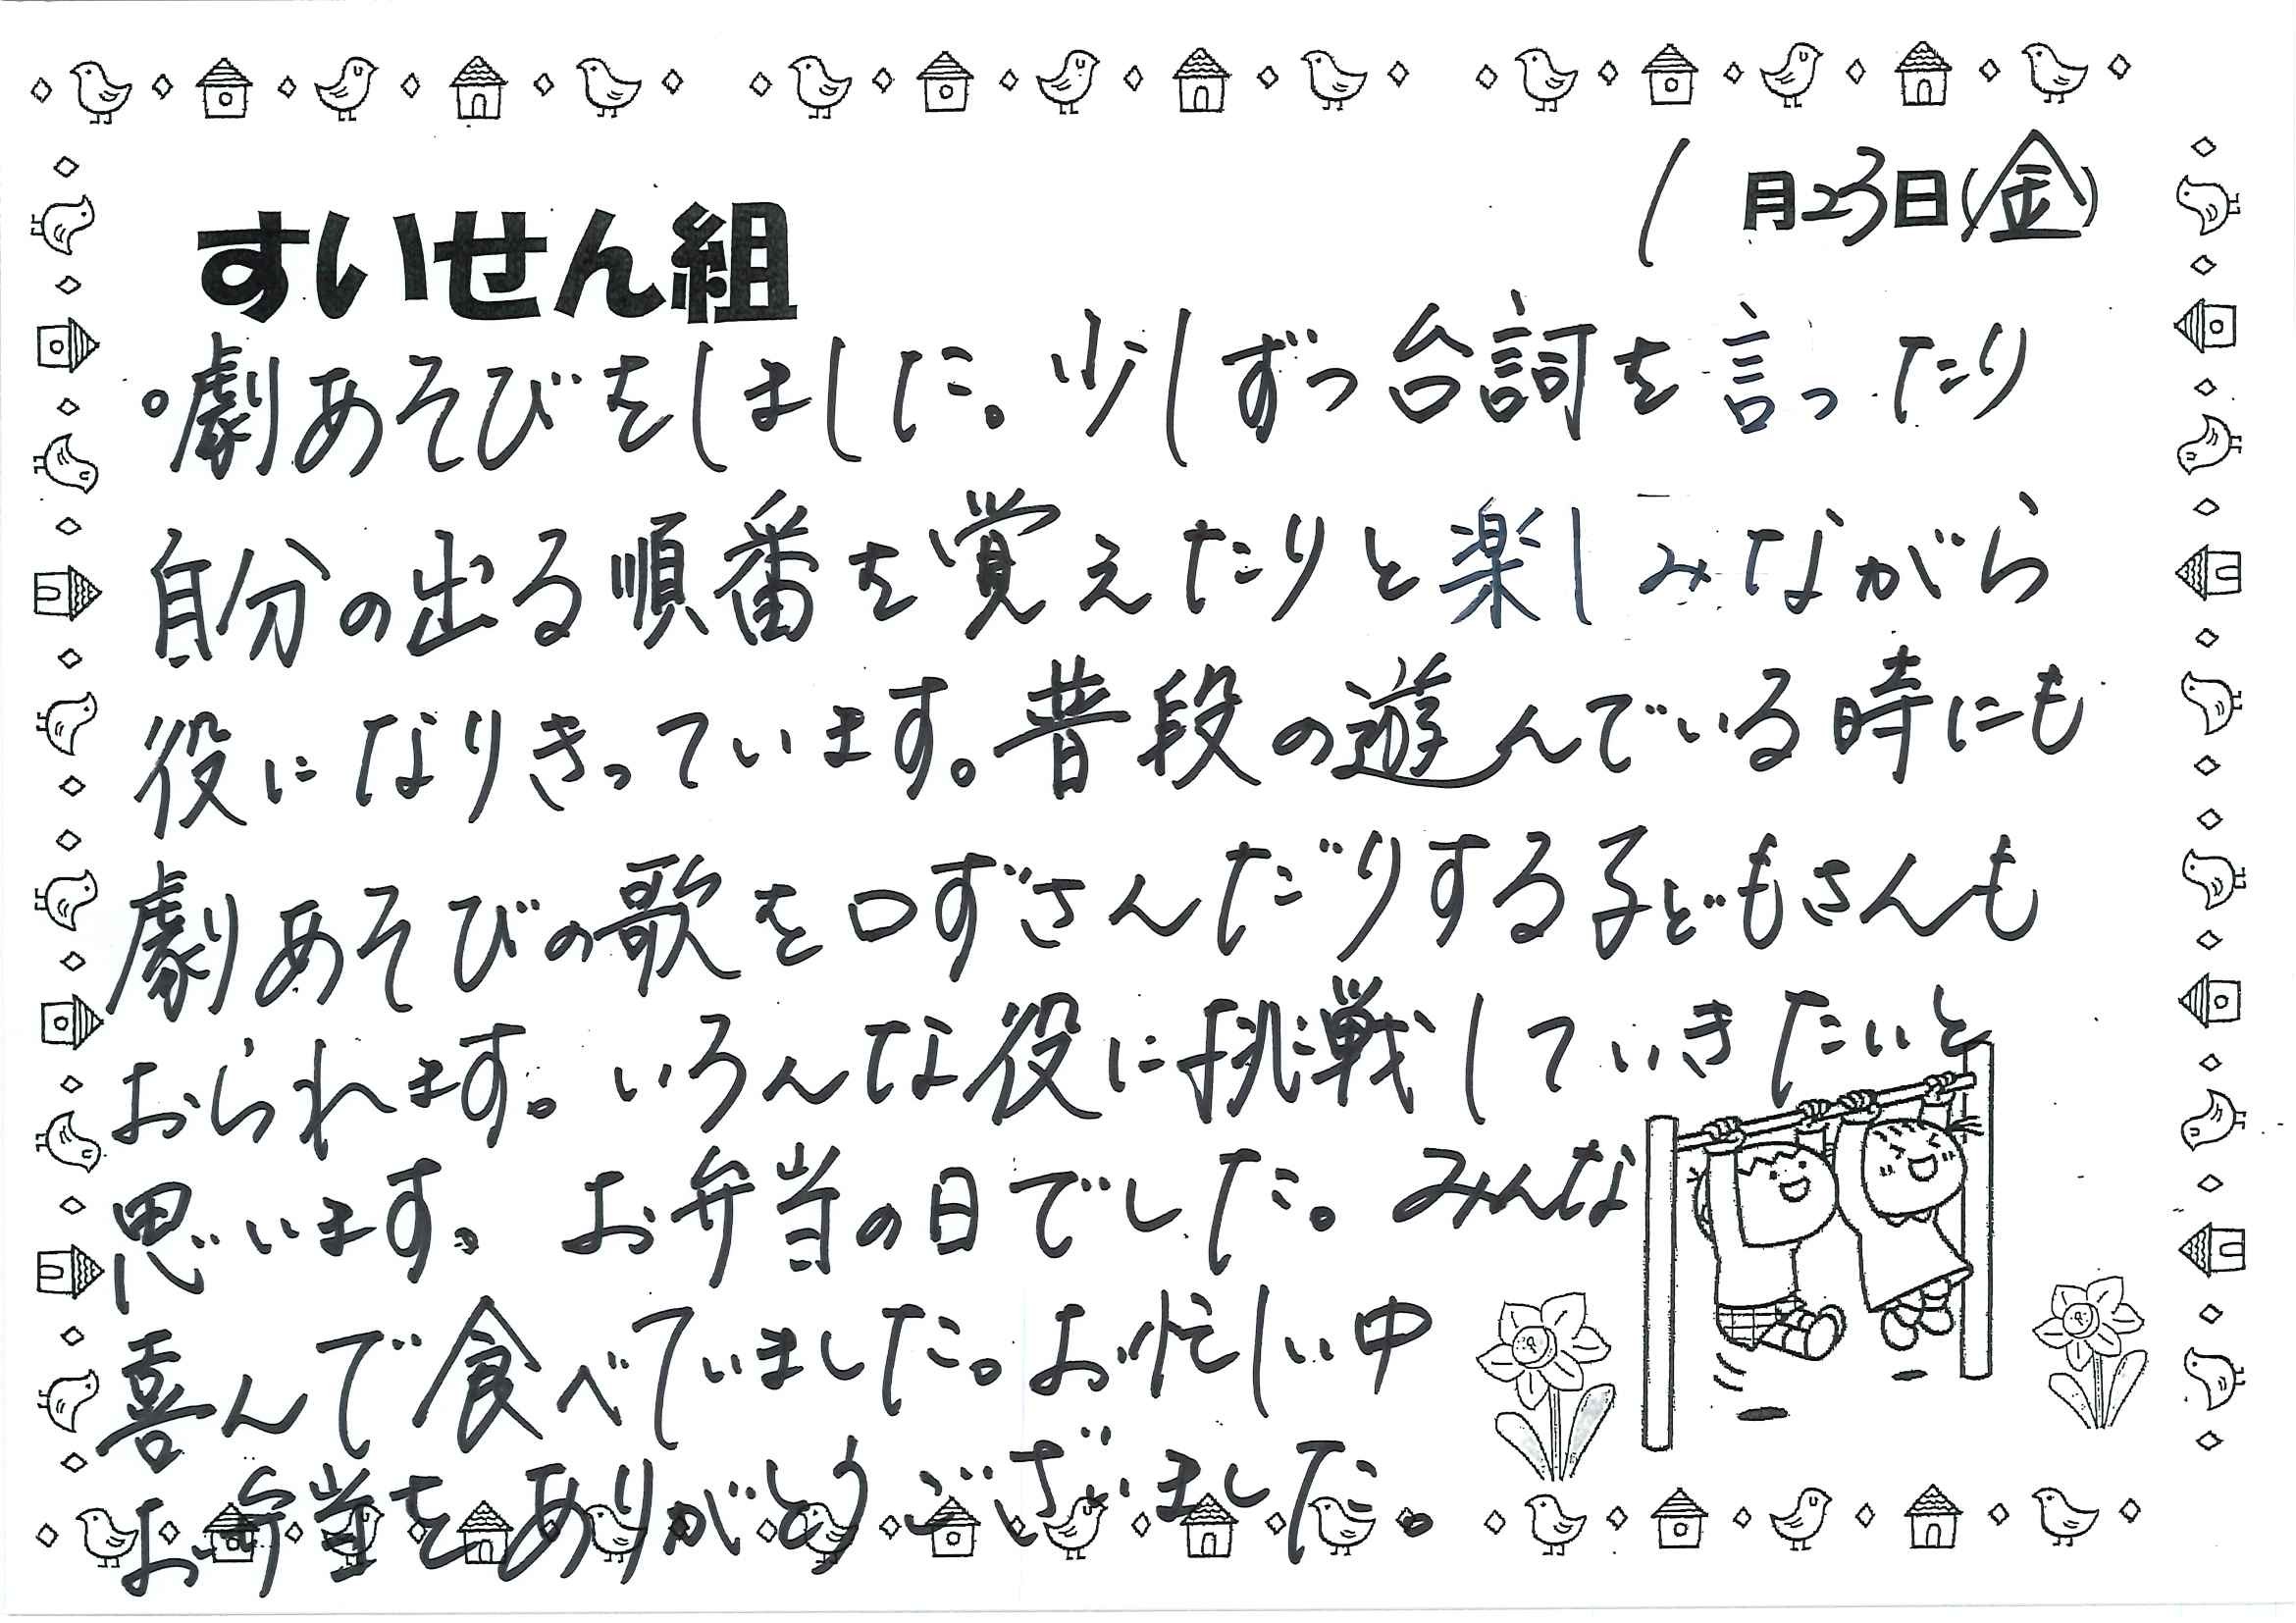 1月23日(金)
すいせん組
。劇あそびをしました。少しずつ台詞を言ったり
自分の出る順番を覚えたりと楽しみながら
役になりきっています。普段の遊んでいる時にも
劇あそびの歌を口ずさんだりする子どもさんも
おられます。いろんな役に挑戦していきたいと
思います。お弁当の日でした。みんな
喜んで食べていました。お忙しい中
お弁当をありがとうございました。